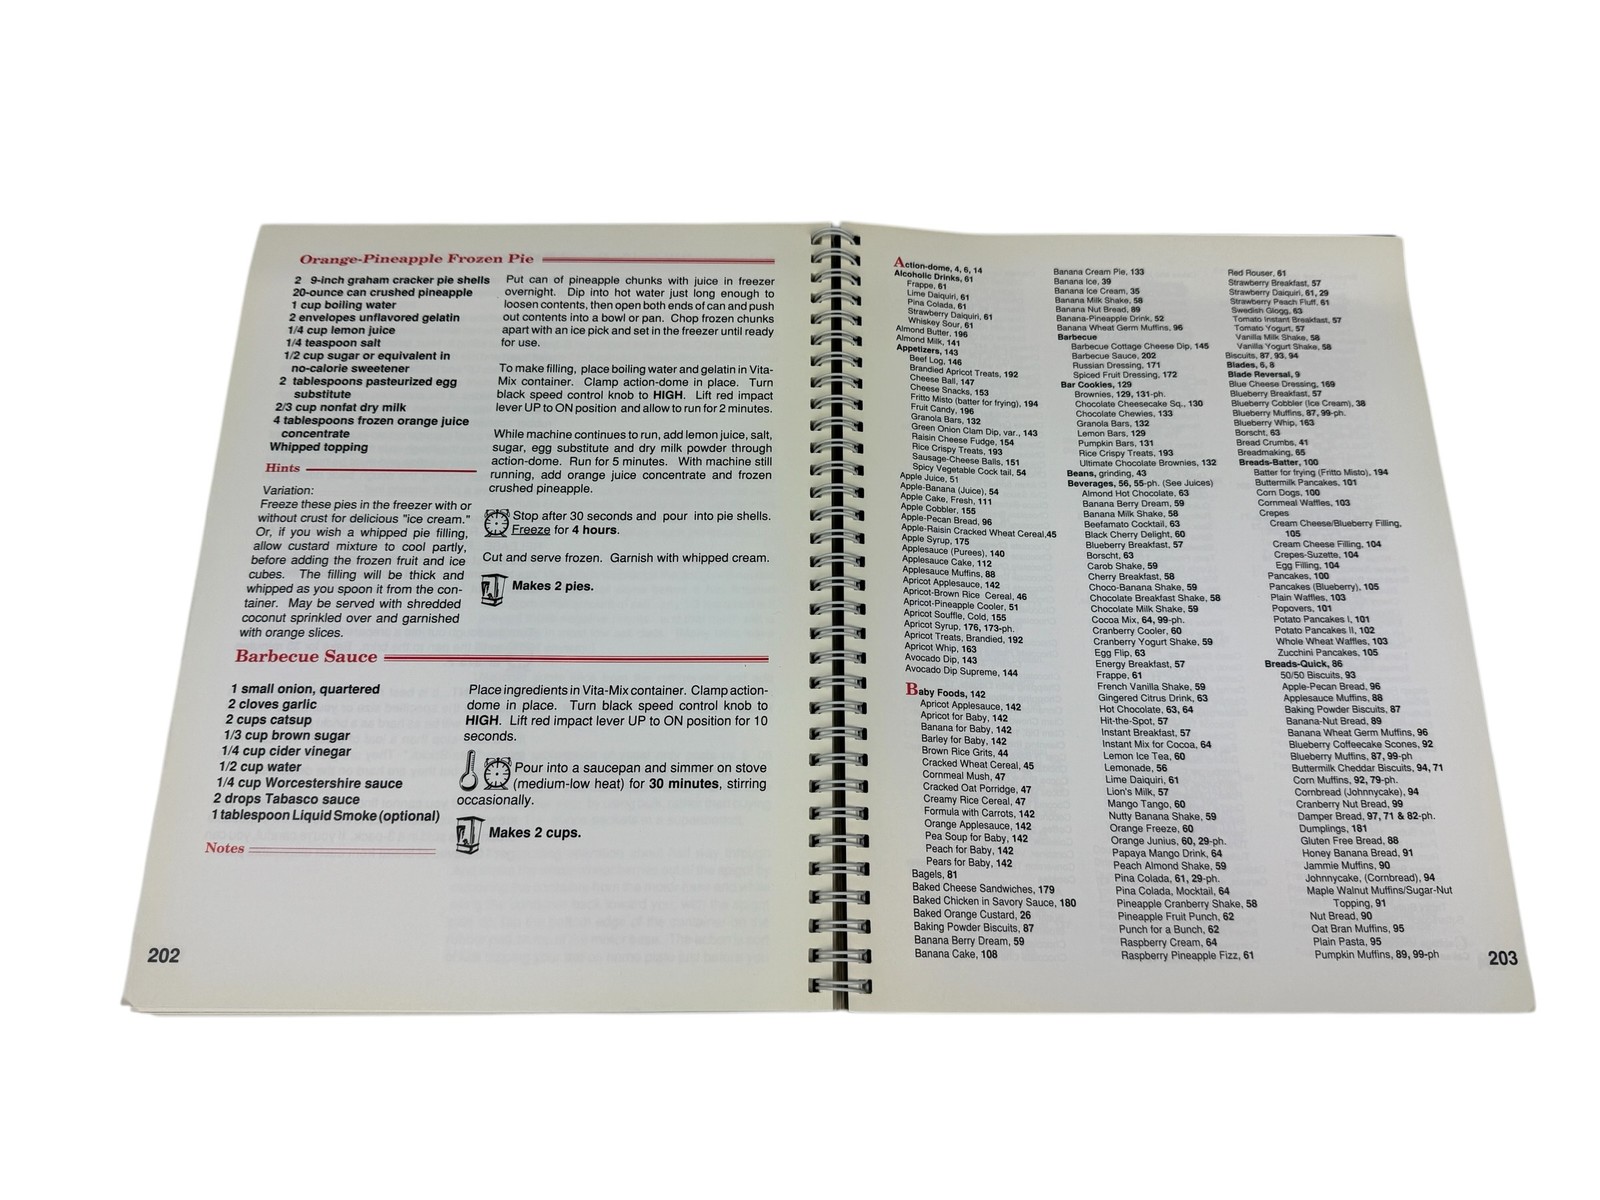 Orange-Pineapple Frozen Pie
2 9-inch graham cracker pie shells
20-ounce can crushed pineapple
1 cup boiling water
2 envelopes unflavored gelatin
1/4 cup lemon juice
1/4 teaspoon salt
1/2 cup sugar or equivalent in
no-calorie sweetener
2 tablespoons pasteurized egg
substitute
2/3 cup nonfat dry milk
4 tablespoons frozen orange juice
concentrate
Whipped topping
Hints
Variation:
Freeze these pies in the freezer with or
without crust for delicious "ice cream."
Or, if you wish a whipped pie filling,
allow custard mixture to cool partly,
before adding the frozen fruit and ice
cubes. The filling will be thick and
whipped as you spoon it from the con-
tainer. May be served with shredded
coconut sprinkled over and garnished
with orange slices.
Put can of pineapple chunks with juice in freezer
overnight. Dip into hot water just long enough to
loosen contents, then open both ends of can and push
out contents into a bowl or pan. Chop frozen chunks
apart with an ice pick and set in the freezer until ready
for use.
To make filling, place boiling water and gelatin in Vita-
Mix container. Clamp action-dome in place. Turn
black speed control knob to HIGH. Lift red impact
lever UP to ON position and allow to run for 2 minutes.
While machine continues to run, add lemon juice, salt,
sugar, egg substitute and dry milk powder through
action-dome. Run for 5 minutes. With machine still
running, add orange juice concentrate and frozen
crushed pineapple.
Stop after 30 seconds and pour into pie shells.
Freeze for 4 hours.
Cut and serve frozen. Garnish with whipped cream.
Makes 2 pies.
Barbecue Sauce
1 small onion, quartered
2 cloves garlic
2 cups catsup
1/3 cup brown sugar
1/4 cup cider vinegar
1/2 cup water
1/4 cup Worcestershire sauce
2 drops Tabasco sauce
1 tablespoon Liquid Smoke (optional)
Notes
Place ingredients in Vita-Mix container. Clamp action-
dome in place. Turn black speed control knob to
HIGH. Lift red impact lever UP to ON position for 10
seconds.
Pour into a saucepan and simmer on stove
(medium-low heat) for 30 minutes, stirring
occasionally.
Makes 2 cups.
202
Action-dome, 4, 6, 14
Alcoholic Drinks, 61
Frappe, 61
Lime Daiquiri, 61
Pina Colada, 61
Strawberry Daiquiri, 61
Whiskey Sour, 61
Almond Butter, 196
Almond Milk, 141
Appetizers, 143
Beef Log, 146
Brandied Apricot Treats, 192
Cheese Ball, 147
Cheese Snacks, 153
Fritto Misto (batter for frying), 194
Fruit Candy, 196
Granola Bars, 132
Green Onion Clam Dip, var., 143
Raisin Cheese Fudge, 154
Rice Crispy Treats, 193
Sausage-Cheese Balls, 151
Spicy Vegetable Cock tail, 54
Apple Juice, 51
Apple-Banana (Juice), 54
Apple Cake, Fresh, 111
Apple Cobbler, 155
Apple-Pecan Bread, 96
Apple-Raisin Cracked Wheat Cereal,45
Apple Syrup, 175
Applesauce (Purees), 140
Applesauce Cake, 112
Applesauce Muffins, 88
Apricot Applesauce, 142
Apricot-Brown Rice Cereal, 46
Apricot-Pineapple Cooler, 51
Apricot Souffle, Cold, 155
Apricot Syrup, 176, 173-ph.
Apricot Treats, Brandied, 192
Apricot Whip, 163
Avocado Dip, 143
Avocado Dip Supreme, 144
Baby Foods, 142
Apricot Applesauce, 142
Apricot for Baby, 142
Banana for Baby, 142
Barley for Baby, 142
Brown Rice Grits, 44
Cracked Wheat Cereal, 45
Cornmeal Mush, 47
Cracked Oat Porridge, 47
Creamy Rice Cereal, 47
Formula with Carrots, 142
Orange Applesauce, 142
Pea Soup for Baby, 142
Peach for Baby, 142
Pears for Baby, 142
Bagels, 81
Baked Cheese Sandwiches, 179
Baked Chicken in Savory Sauce, 180
Baked Orange Custard, 26
Baking Powder Biscuits, 87
Banana Berry Dream, 59
Banana Cake, 108
Banana Cream Pie, 133
Banana Ice, 39
Banana Ice Cream, 35
Banana Milk Shake, 58
Banana Nut Bread, 89
Banana-Pineapple Drink, 52
Banana Wheat Germ Muffins, 96
Barbecue
Barbecue Cottage Cheese Dip, 145
Barbecue Sauce, 202
Russian Dressing, 171
Spiced Fruit Dressing, 172
Bar Cookies, 129
Brownies, 129, 131-ph.
Chocolate Cheesecake Sq., 130
Chocolate Chewies, 133
Granola Bars, 132
Lemon Bars, 129
Pumpkin Bars, 131
Rice Crispy Treats, 193
Ultimate Chocolate Brownies, 132
Beans, grinding, 43
Beverages, 56, 55-ph. (See Juices)
Almond Hot Chocolate, 63
Banana Berry Dream, 59
Banana Milk Shake, 58
Beefamato Cocktail, 63
Black Cherry Delight, 60
Blueberry Breakfast, 57
Borscht, 63
Carob Shake, 59
Cherry Breakfast, 58
Choco-Banana Shake, 59
Chocolate Breakfast Shake, 58
Chocolate Milk Shake, 59
Cocoa Mix, 64, 99-ph.
Cranberry Cooler, 60
Cranberry Yogurt Shake, 59
Egg Flip, 63
Energy Breakfast, 57
Frappe, 61
French Vanilla Shake, 59
Gingered Citrus Drink, 63
Hot Chocolate, 63, 64
Hit-the-Spot, 57
Instant Breakfast, 57
Instant Mix for Cocoa, 64
Lemon Ice Tea, 60
Lemonade, 56
Lime Daiquiri, 61
Lion's Milk, 57
Mango Tango, 60
Nutty Banana Shake, 59
Orange Freeze, 60
Orange Junius, 60, 29-ph.
Papaya Mango Drink, 64
Peach Almond Shake, 59
Pina Colada, 61, 29-ph.
Pina Colada, Mocktail, 64
Pineapple Cranberry Shake, 58
Pineapple Fruit Punch, 62
Punch for a Bunch, 62
Raspberry Cream, 64
Raspberry Pineapple Fizz, 61
Red Rouser, 61
Strawberry Breakfast, 57
Strawberry Daiquiri, 61, 29
Strawberry Peach Fluff, 61
Swedish Glogg, 63
Tomato Instant Breakfast, 57
Tomato Yogurt, 57
Vanilla Milk Shake, 58
Vanilla Yogurt Shake, 58
Biscuits, 87, 93, 94
Blades, 6, 8
Blade Reversal, 9
Blue Cheese Dressing, 169
Blueberry Breakfast, 57
Blueberry Cobbler (Ice Cream), 38
Blueberry Muffins, 87, 99-ph.
Blueberry Whip, 163
Borscht, 63
Bread Crumbs, 41
Breadmaking, 65
Breads-Batter, 100
Batter for frying (Fritto Misto), 194
Buttermilk Pancakes, 101
Corn Dogs, 100
Cornmeal Waffles, 103
Crepes
Cream Cheese/Blueberry Filling,
105
Cream Cheese Filling, 104
Crepes-Suzette, 104
Egg Filling, 104
Pancakes, 100
Pancakes (Blueberry), 105
Plain Waffles, 103
Popovers, 101
Potato Pancakes I, 101
Potato Pancakes II, 102
Whole Wheat Waffles, 103
Zucchini Pancakes, 105
Breads-Quick, 86
50/50 Biscuits, 93
Apple-Pecan Bread, 96
Applesauce Muffins, 88
Baking Powder Biscuits, 87
Banana-Nut Bread, 89
Banana Wheat Germ Muffins, 96
Blueberry Coffeecake Scones, 92
Blueberry Muffins, 87, 99-ph
Buttermilk Cheddar Biscuits, 94, 71
Corn Muffins, 92, 79-ph.
Cornbread (Johnnycake), 94
Cranberry Nut Bread, 99
Damper Bread, 97, 71 & 82-ph.
Dumplings, 181
Gluten Free Bread, 88
Honey Banana Bread, 91
Jammie Muffins, 90
Johnnycake, (Cornbread), 94
Maple Walnut Muffins/Sugar-Nut
Topping, 91
Nut Bread, 90
Oat Bran Muffins, 95
Plain Pasta, 95
Pumpkin Muffins, 89, 99-ph
203